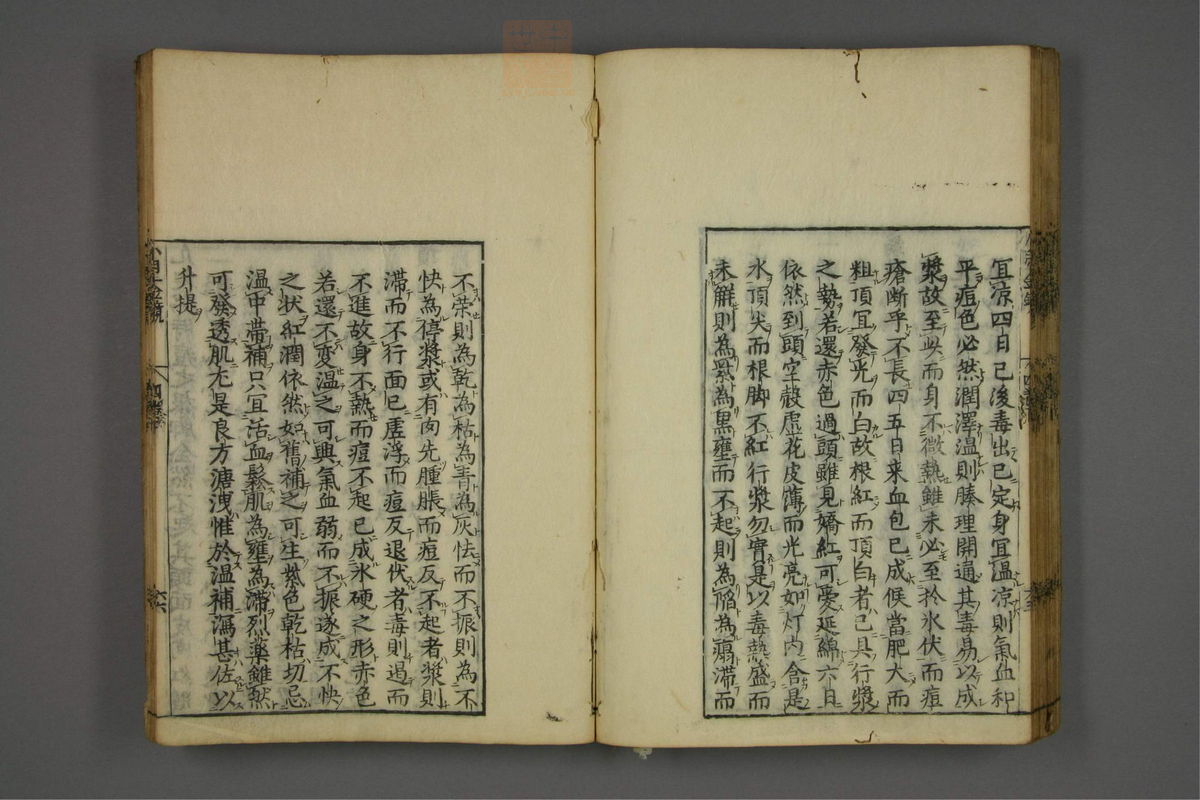 宜凉四日已後毒出已定身宜温凉則氣血和
平痘色必然潤澤温則腠理開通其毒易以成
漿故至此而身不微熱雖未必至於氷伏而痘
瘡断乎不長四五日来血包已成候當肥大而
粗頂宜發光而白故根紅而頂白者已具行漿
之勢若還赤色過頭雖見嬌紅可愛延綿六日
依然到頭空殼虚花皮薄而光亮如灯内含是
水頂尖而根脚不紅行漿勿實是以毒熱盛而
未解則為紫為黒壅而不起則為陥為塌滞而
不荣則為乾為枯為青為灰怯而不振則為不
快為停漿或有肉先腫脹而痘反不起者漿則
滞而不行面已虚浮而痘反退伏者毒則遏而
不進故身不熱而痘不起已成氷硬之形赤色
若還不変温之可興氣血弱而不振遂成不快
之状紅潤依然如舊補之可生紫色乾枯切忌
温中帯補只宜活血鬆肌為壅為滞烈薬雖然
可發透肌尤是良方溏洩惟於温補瀉甚佐以
升提